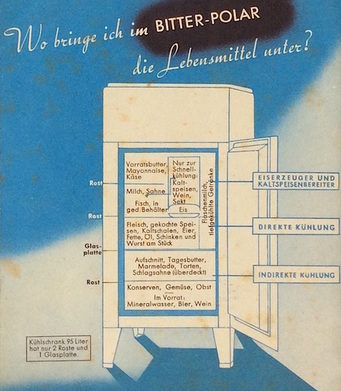 Wo bringe ich im BITTER-POLAR
die Lebensmittel unter?
Vorratsbutter,
Mayonnaise,
Käse
Milch, Sahne
Fisch, in
ged. Behälter
Nur zur
Schnell-
kühlung:
Kalt-
speisen,
Wein,
Sekt
Eis
Flaschenmilch,
tiefgekühlte Getränke
Fleisch, gekochte Spei-
sen, Kaltschalen, Eier,
Fette, Öl, Schinken und
Wurst am Stück
Aufschnitt, Tagesbutter,
Marmelade, Torten,
Schlagsahne (überdeckt)
Konserven, Gemüse, Obst
Im Vorrat:
Mineralwasser, Bier, Wein
Rost
Rost
Glas-
platte
Rost
EISERZEUGER UND
KALTSPEISENBEREITER
DIREKTE KÜHLUNG
INDIREKTE KÜHLUNG
Kühlschrank 95 Liter
hat nur 2 Roste und
1 Glasplatte.